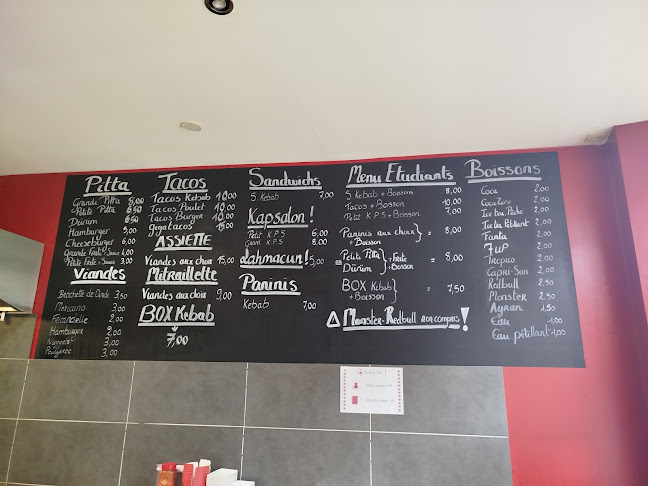 Pitta
Grande Pitta 8,00
Petite Pitta 6,50
Dürüm 6,50
Hamburger 5,00
Cheeseburger 6,00
Grande Frite + Sauce
Petite Frite + Sauce 3,00
Viandes
Brochette de Dinde 3,50
Mexicano 3,00
Fricandelle 2,00
Hamburger 2,00
Nuggets 3,00
3,00
Tacos
Tacos Kebab 10,00
Tacos Poulet 10,00
Tacos Burger 10,00
Giga tacos 15,00
ASSIETTE
Viandes aux choix 15,00
Mitraillette
Viandes aux choix 9,00
BOX Kebab
7,00
Sandwichs
S. Kebab 7,00
Kapsalon!
Petit K.P.S 6,00
Grand K.P.S 8,00
Lahmacun! 5,00
Paninis
Kebab 7,00
Menu Etudiants
S. Kebab + Boissons 8,00
Tacos + Boisson 10,00
Petit K.P.S + Boisson 7,00
Paninis aux choix + Boisson = 8,00
Petite Pitta
Dürüm + Frite + Boisson = 8,00
BOX Kebab + Boisson = 7,50
Monster-Redbull non compris!
Boissons
Coca 2,00
Coca Zero 2,00
Ice tea Pêche 2,00
Ice tea Pétillant 2,00
Fanta 2,00
7UP 2,00
Tropico 2,00
Capri-Sun 2,00
Redbull 2,50
Monster 2,50
Ayran 1,50
Eau 1,00
Eau pétillant 1,00